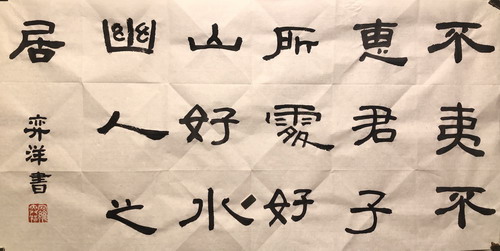 不夷不
惠君子
所處好
山好水
幽人之
居
弈洋書